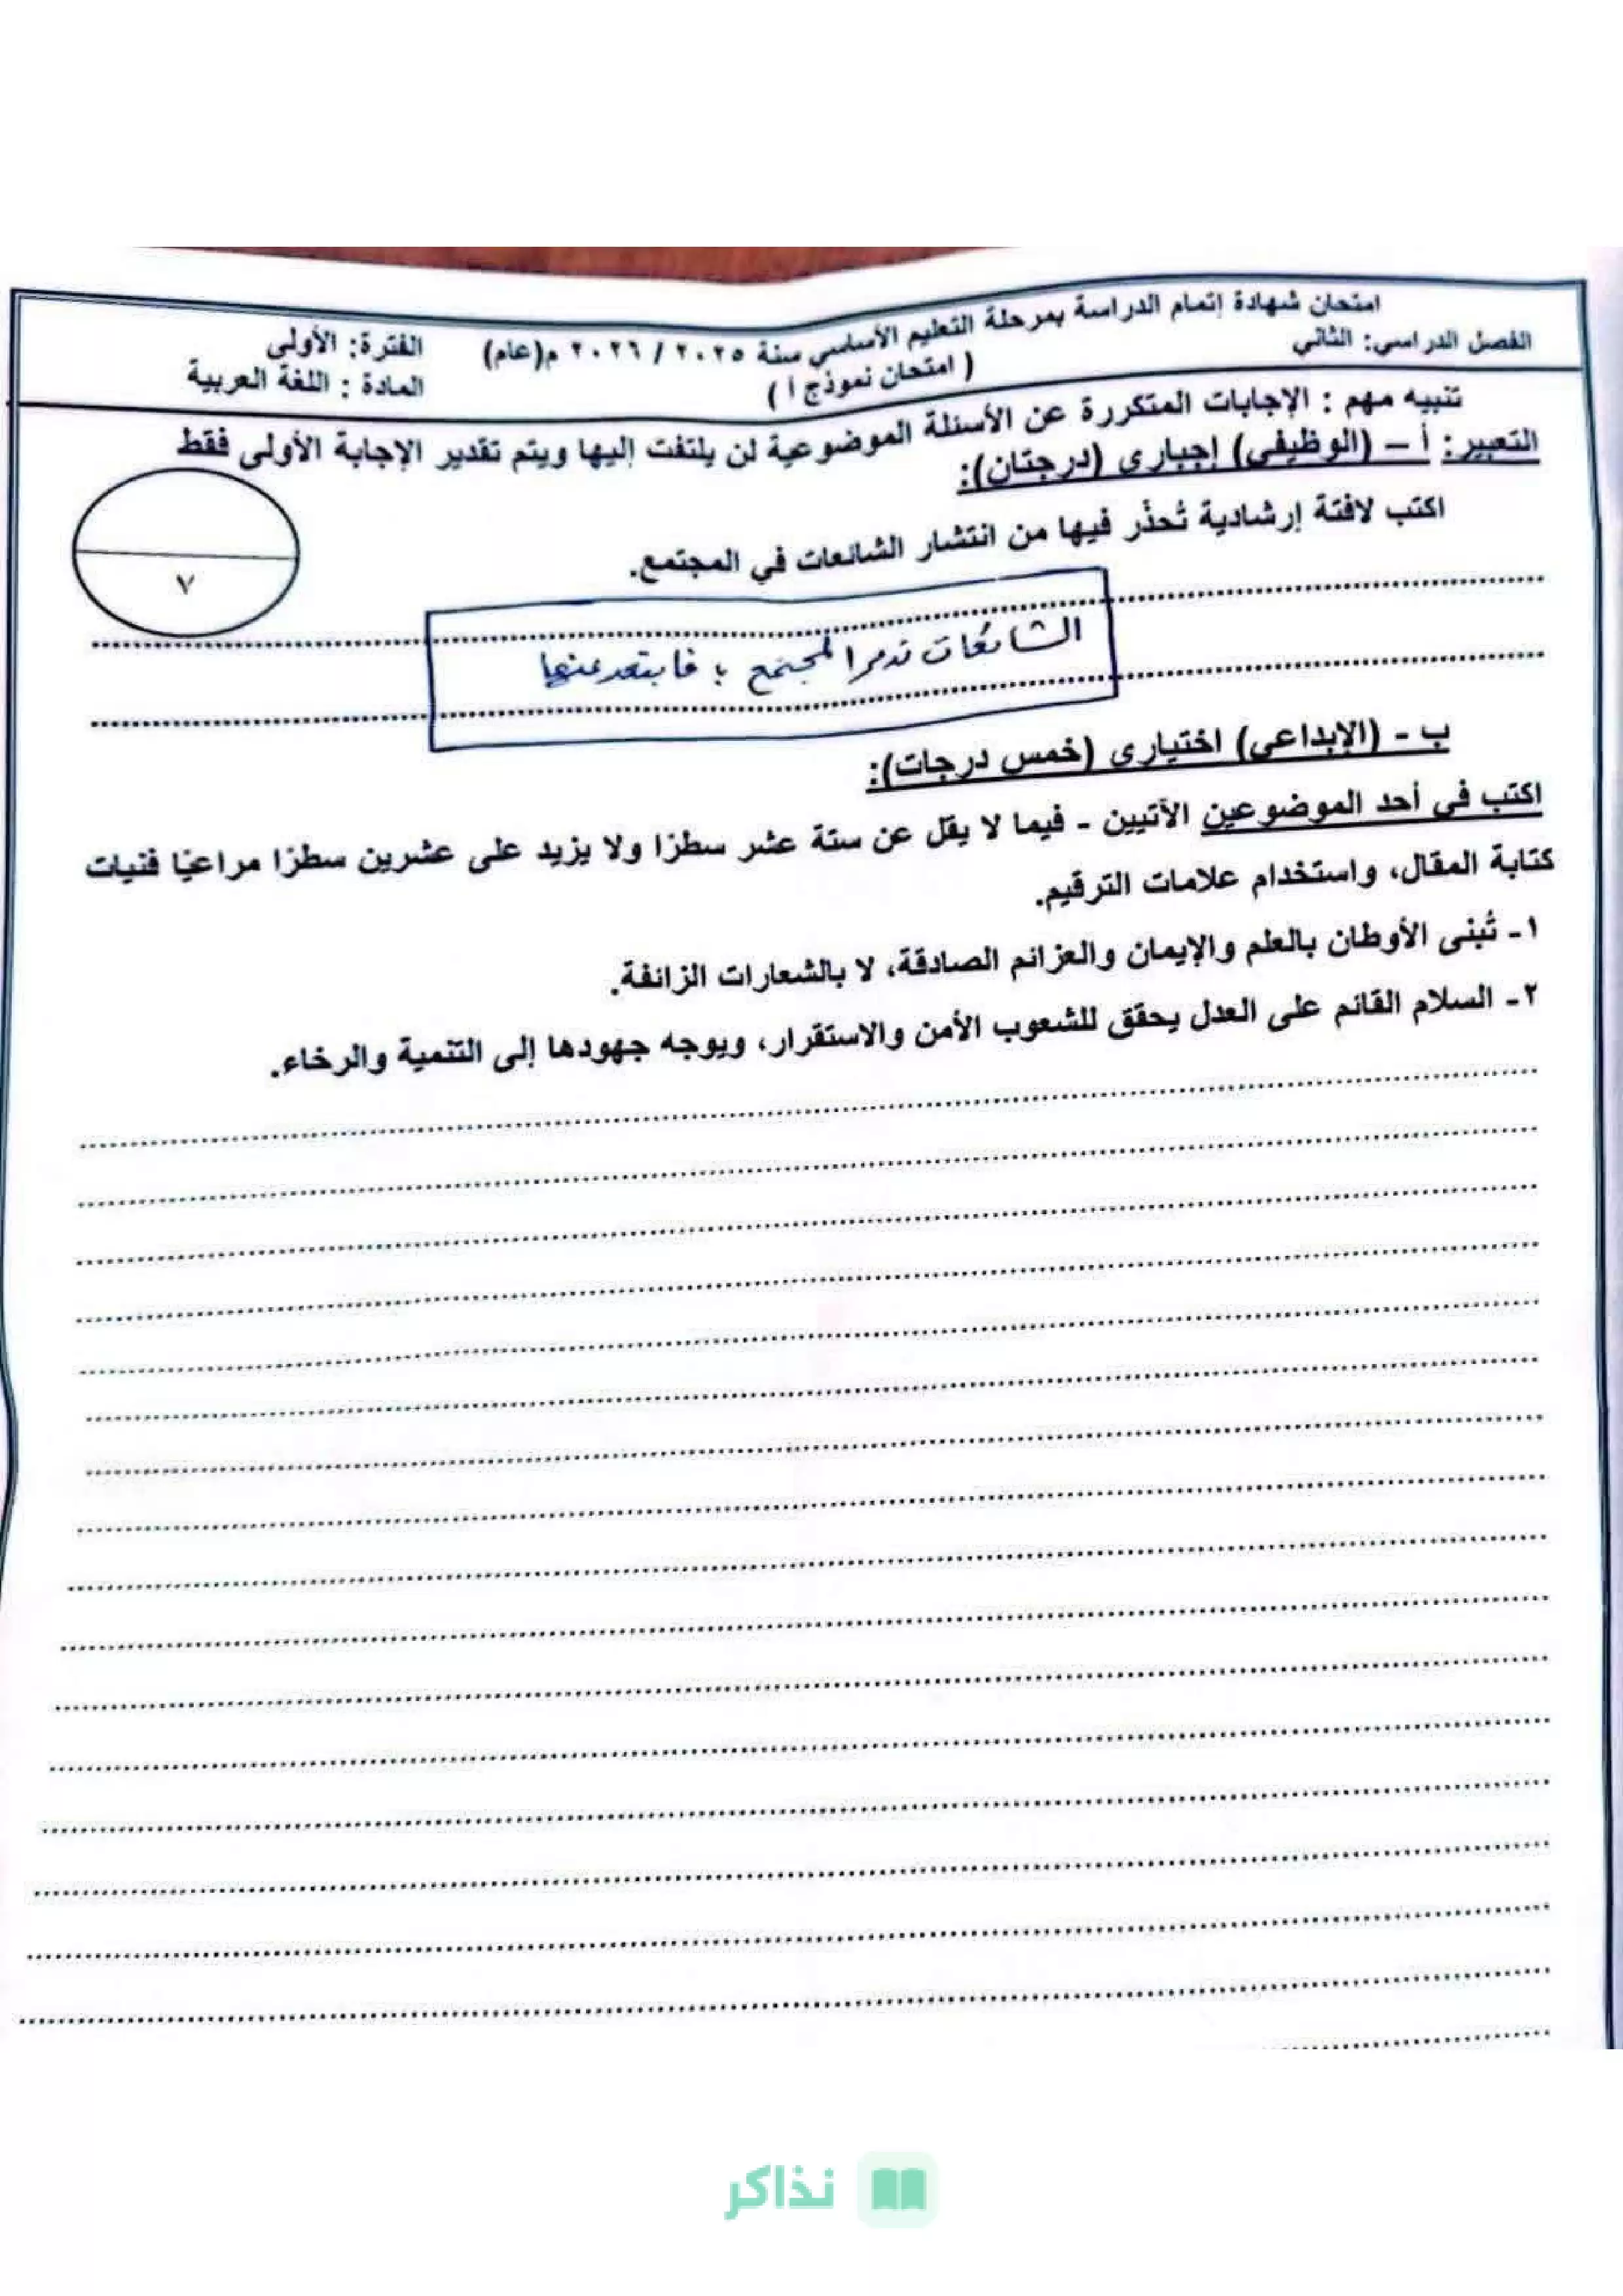 امتحان شهادة إتمام الدراسة بمرحلة التعليم الأساسي سنة ٢٠٢٥ / ٢٠٢٦ م(عام)
الفصل الدراسي: الثاني
( امتحان نموذج أ )
الفترة: الأولى
المادة : اللغة العربية
تنبيه مهم : الإجابات المتكررة عن الأسئلة الموضوعية لن يلتفت إليها ويتم تقدير الإجابة الأولى فقط
التعبير: أ – (الوظيفي) إجباري (درجتان):
٧
اكتب لافتة إرشادية تُحذّر فيها من انتشار الشائعات في المجتمع.
الشائعات تدمر المجتمع ؛ فابتعد عنها
ب - (الإبداعي) اختياري (خمس درجات):
اكتب في أحد الموضوعين الآتيين - فيما لا يقل عن ستة عشر سطرًا ولا يزيد على عشرين سطرًا مراعيًا فنيات
كتابة المقال، واستخدام علامات الترقيم.
١- تُبنى الأوطان بالعلم والإيمان والعزائم الصادقة، لا بالشعارات الزائفة.
٢- السلام القائم على العدل يحقق للشعوب الأمن والاستقرار، ويوجه جهودها إلى التنمية والرخاء.
نذاكر